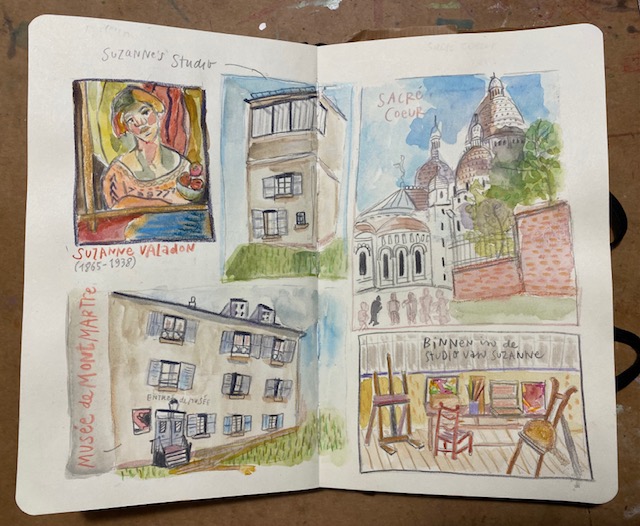 Suzanne's Studio
SUZANNE VALADON
(1865-1938)
MUSÉE de MONTMARTRE
ENTRÉE du MUSÉE
SACRÉ
COEUR
BINNEN in de
STUDIO VAN SUZANNE